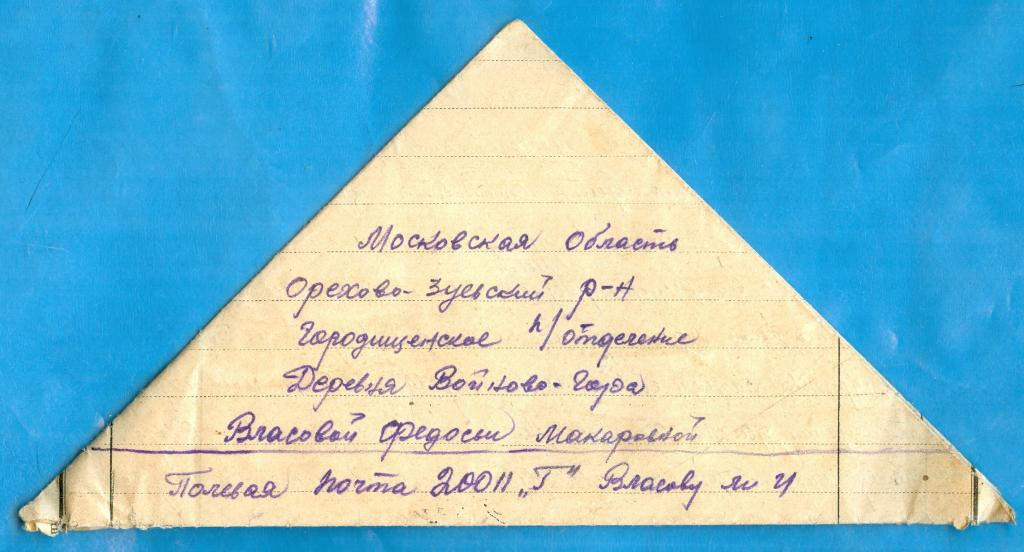 Московская область
Орехово-Зуевский р-н
Городищенское п/отделение
Деревня Войново-Гора
Власовой Федосьи Макаровной
Полевая почта 20011 „Г" Власову